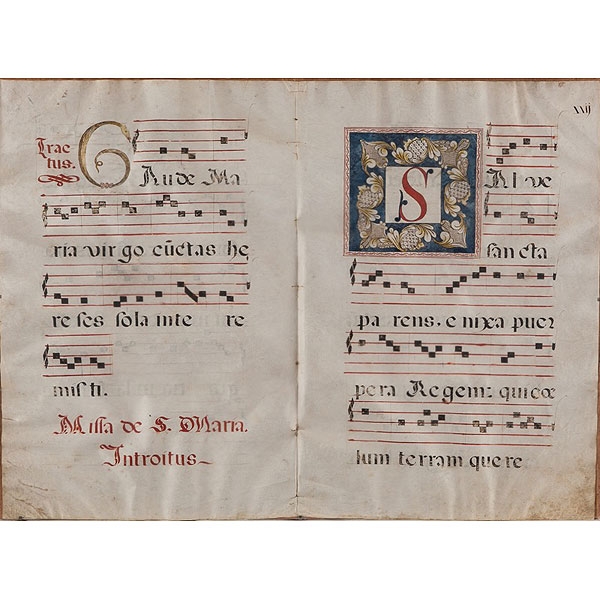 Trac
tus.
GAude Ma
ria virgo cūctas he
reses sola inte re
misti.
Missa de S. Maria.
Introitus
XXIJ
SAlve
sancta
parens, enixa puer
pera Regem: qui cœ
lum terram que re